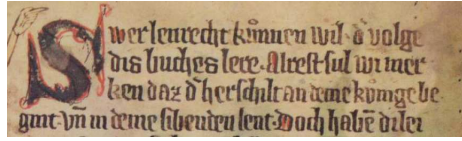 Swer lenrecht kůnnen wil · d̕ volge
dis buches lere · Alrest sul wi mer
ken daz d̕ herschilt an deme kůnige be
gint · vn̄ in deme sibenden lent · Doch habē di lei